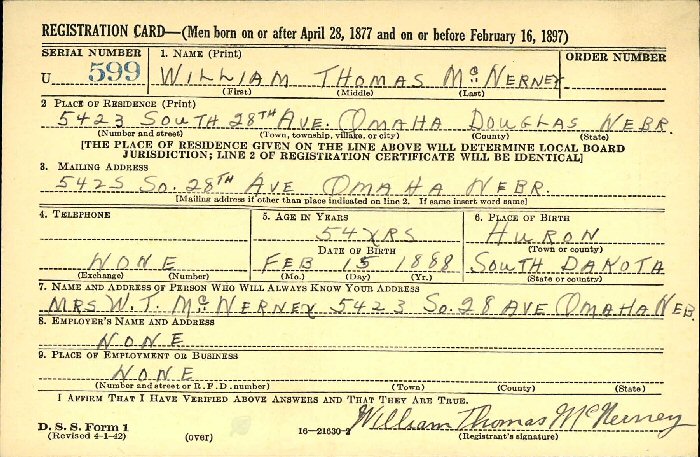 REGISTRATION CARD—(Men born on or after April 28, 1877 and on or before February 16, 1897)
SERIAL NUMBER 1. NAME (Print) ORDER NUMBER
U 599 WILLIAM THOMAS McNERNEY
(First) (Middle) (Last)
2 PLACE OF RESIDENCE (Print)
5423 SOUTH 28TH AVE. OMAHA DOUGLAS NEBR.
(Number and street) (Town, township, village, or city) (County) (State)
[THE PLACE OF RESIDENCE GIVEN ON THE LINE ABOVE WILL DETERMINE LOCAL BOARD
JURISDICTION; LINE 2 OF REGISTRATION CERTIFICATE WILL BE IDENTICAL]
3. MAILING ADDRESS
5425 SO. 28TH AVE OMAHA NEBR.
[Mailing address if other than place indicated on line 2. If same insert word same]
4. TELEPHONE 5. AGE IN YEARS 6. PLACE OF BIRTH
54 YRS HURON
DATE OF BIRTH (Town or county)
NONE FEB 15 1888 SOUTH DAKOTA
(Exchange) (Number) (Mo.) (Day) (Yr.) (State or country)
7. NAME AND ADDRESS OF PERSON WHO WILL ALWAYS KNOW YOUR ADDRESS
MRS W.T. McNERNEY 5423 SO. 28 AVE OMAHA NEB.
8. EMPLOYER'S NAME AND ADDRESS
NONE
9. PLACE OF EMPLOYMENT OR BUSINESS
NONE
(Number and street or R. F. D. number) (Town) (County) (State)
I AFFIRM THAT I HAVE VERIFIED ABOVE ANSWERS AND THAT THEY ARE TRUE.
William Thomas McNerney
D. S. S. Form 1
(Revised 4-1-42) (over) 16—21630-2 (Registrant's signature)